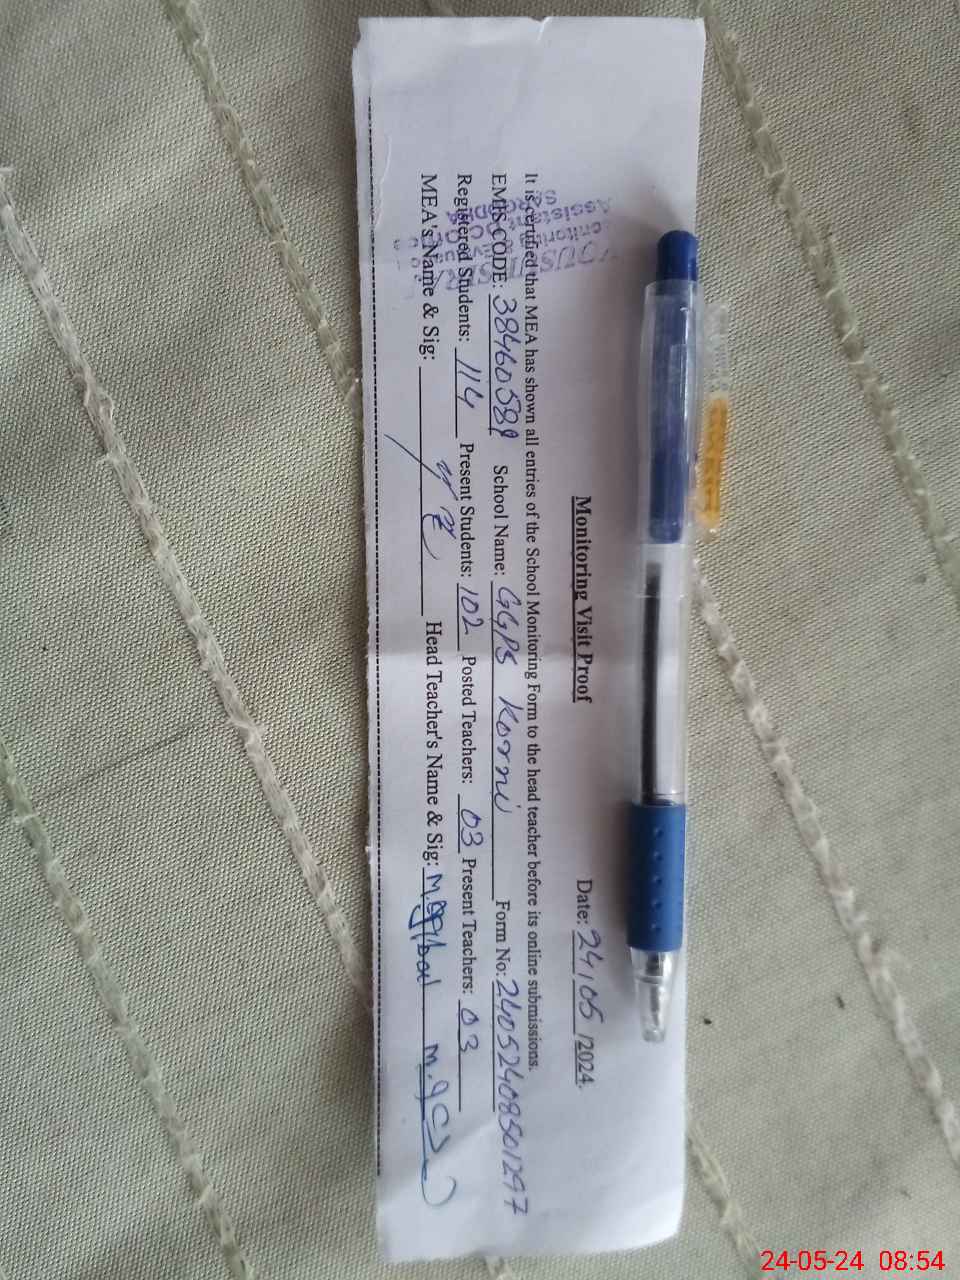 Monitoring Visit Proof Date: 24/05/2024.
It is certified that MEA has shown all entries of the School Monitoring Form to the head teacher before its online submissions.
EMIS CODE: School Name: GGPS Korni Form No: 24052408501297
Registered Students: 114 Present Students: 102 Posted Teachers: 03 Present Teachers: 03
MEA's Name & Sig: Head Teacher's Name & Sig: M.
Assistant
24-05-24 08:54